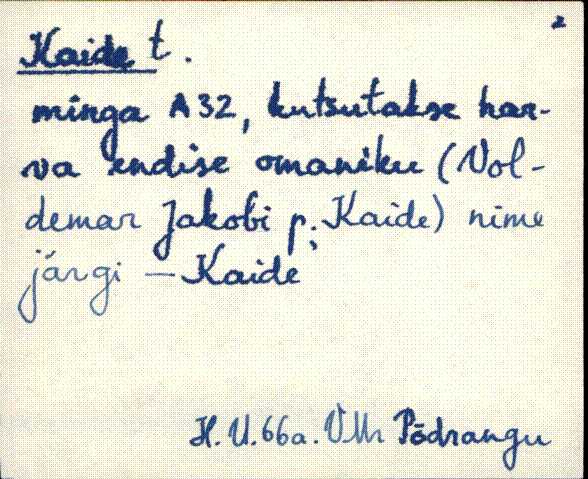 2
Kaide t.
minga A32, kutsutakse har-
va endise omaniku (Vol-
demar Jakobi p. Kaide) nime
järgi — Kaide
H. U. 66a. VMr Põdrangu